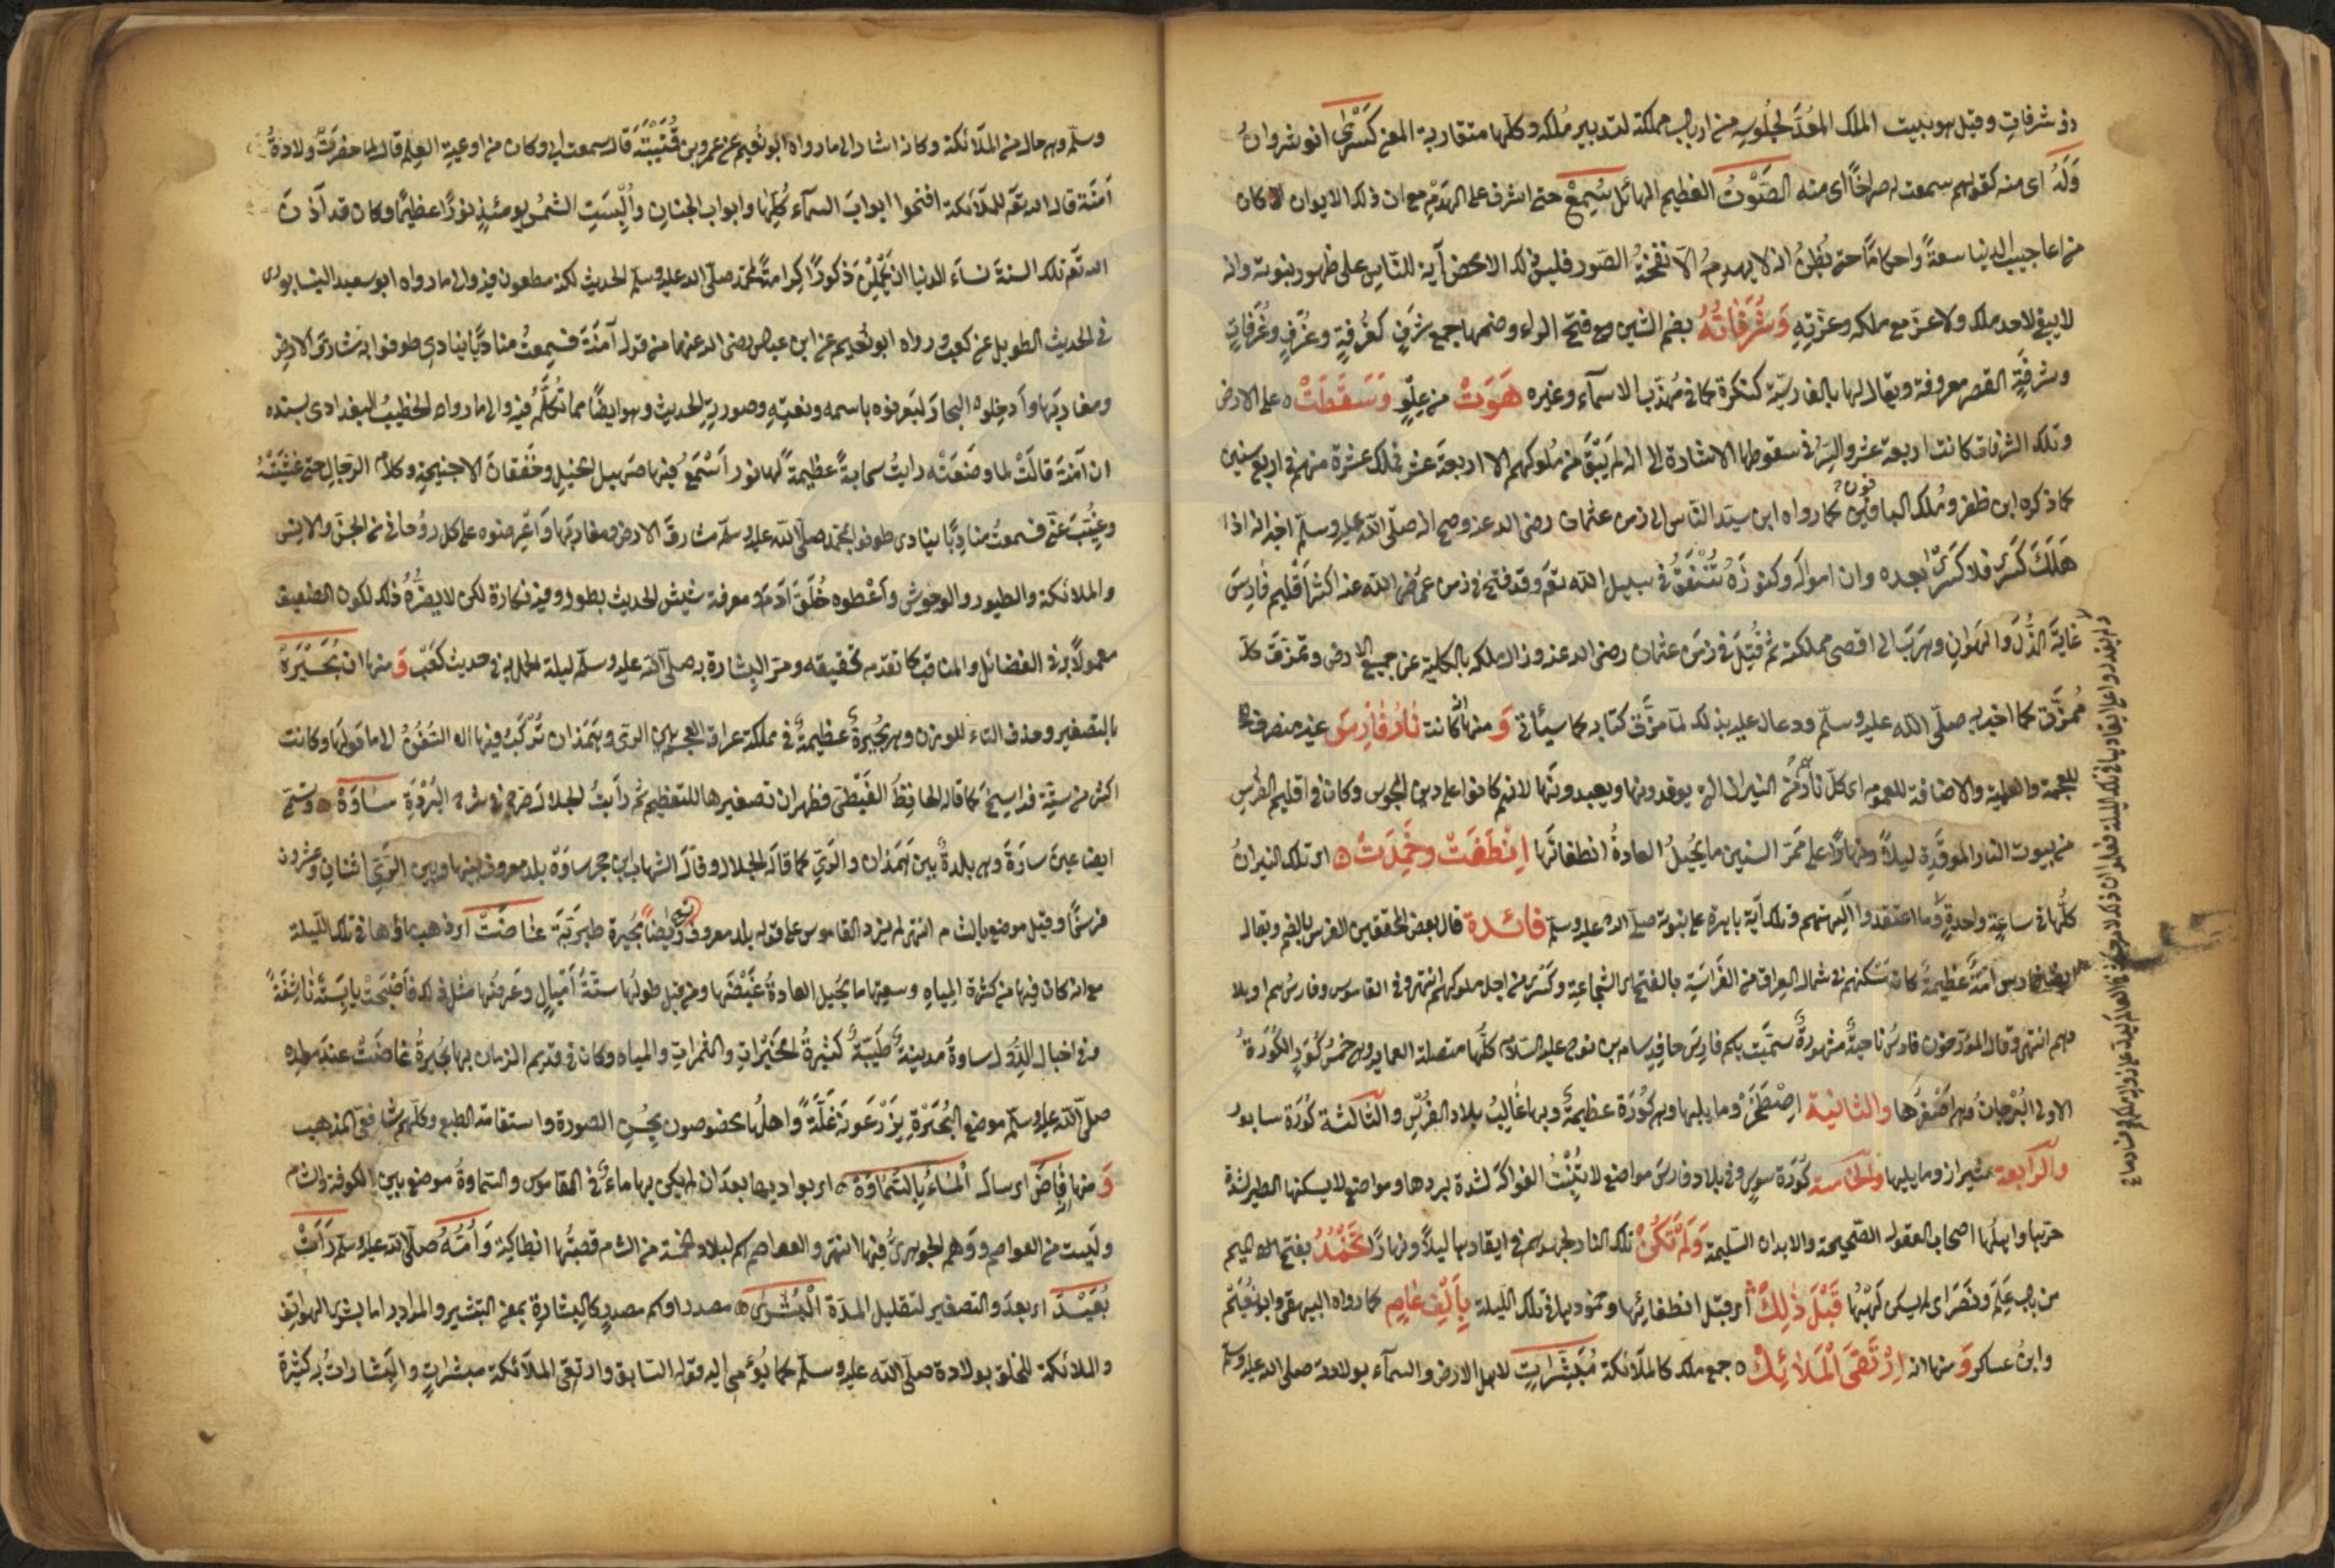 ذو شرفات وقيل هو بيت الملك المُعَدّ لجلوسه من ارباب مملكته لتدبير مُلكه وكلها متقاربة المعنى كسرى انوشروان
وَلَهُ اى منه كقولهم سمعت له صراخًا اى منه الصَّوْتُ العظيم الهائل سُمِعْ حتى اشرف على الهدم مع ان ذلك الايوان كان
من اعاجيب الدنيا سعةً واحكامًا حتى يُظن انه لا يهدمه الا نفخة الصّور فليس ذلك الا لمحض آية للنّاس على ظهور نبوته وانه
لا يبقى لاحد ملك ولا عزّ مع ملكه وعزّته وَشُرَفَاتُهُ بضم الشين مع فتح الراء وضمها جمع شرف كغرفة وغُرَف وغُرُفات
وشرفة القصر معروفة ويقال لها بالفارسيّة كنكرة كما فى مهذّب الاسماء وغيره هَوَتْ من علوّ وَسَقَطَتْ على الارض
وتلك الشرفات كانت اربعة عشر والسرّ فى سقوطها الاشارة الى انه لم يَبْقَ من ملوكهم الا اربعة عشر فملك عشرة منهم فى اربع سنين
كما ذكره ابن ظفر ومُلك الباقون كما رواه ابن سيّد النّاس الى زمن عثمان رضى الله عنه وصح انه صلّى الله عليه وسلّم اخبر انه اذا
هَلَكَ كسرى فلا كسرى بعده وان امواله وكنوزه تُنْفَقُ فى سبيل الله تعَ وقد فتح فى زمن عمر رضى الله عنه اكثر اقليم فارس
غاية الذّل والهوان وهرب الى اقصى مملكته ثم قُتِلَ فى زمن عثمان رضى الله عنه وزال ملكه بالكلية عن جميع الارض وتمزق كلّ
مُمَزَّق كما اخبر به صلّى الله عليه وسلّم ودعا عليه بذلك لمّا مزّق كتابه كما سيأتى وَ منها انه كانت نَارُ فَارِسَ غير منصرف
للعجمة والعلمية والاضافة للعموم اى كلّ نارٍ من النيران التى يوقدونها ويعبدونها لانهم كانوا على دين المجوس وكان فى اقليم الفرس
من بيوت النار الموقدة ليلاً ونهارًا على ممرّ السنين ما يُحيل العادة انطفائها اِنْطَفَتْ وخَمِدَتْ اى تلك النيران
كلّها فى ساعةٍ واحدةٍ وما اعتقدوا آلهتهم وذلك آية باهرة على نبوته صلى الله عليه وسلم فائدة قال بعض المحققين الفرس بالضم ويقال
فارس امّة عظيمة كان مَسْكنهم فى شمال العراق من الفَرَاسة بالفتح اى الشجاعة وكسرى من اجل ملوكهم انتهى وفى القاموس وفارس هم او بلا
دهم انتهى وقال المؤرخون فارس ناحيةٌ مشهورةٌ سمّيت باسم فارس حافد سام بن نوح عليه السّلام كلّها متصلة العماير وهى خمس كُوَر الكورة
الاولى اصغرها والثانية اِصْطَخَرْ وما يليها وهى كُوْرَة عظيمةٌ وبها غالب بلاد الفرس والثالثة كُوْرَة سابور
والرابعة شيراز وما يليها والخامسة كُوْرَة سوس وفى بلاد فارس مواضع لا تُنْبِتُ الفواكه لشدة بردها ومواضع لا يسكنها الطير لشدة
حرّها واهلها اصحاب العقول الصّحيحة والابدان السّليمة وَلَمْ تَكُنْ تلك النار لجهدهم فى ايقادها ليلاً ونهارًا تَخْمُدُ بفتح الميم
من باب عَلِمَ ونَصَرَ اى لم يسكن لهبها قَبْلَ ذٰلِكَ اى قبل انطفائها وخمودها فى تلك الليلة بِاَلْفِ عَامٍ كما رواه البيهقى وابو نُعَيم
وابن عساكر وَ منها انه اِرْتَقَى الْمَلَائِكُ جمع ملك كالملائكة مُبَشِّرَاتٍ لاهل الارض والسمآء بولادته صلى الله عليه وسلم
وسلّم وهى حال من الملآئكة وكانه اشار الى ما رواه ابو نُعيم عن عمرو بن قُتَيْبَة قال سمعت ابى وكان من اوعية العلم قال لما حضرت ولادةُ
آمنة قال الله تعَ للملآئكة افتحوا ابواب السمآء كلّها وابواب الجنان وأُلْبِسَتِ الشمس يومئذٍ نورًا عظيمًا وكان قد آذن
الله تعَ تلك السنة نسآء الدنيا ان يَحْمِلْنَ ذكورًا كرامةً لمحمّد صلّى الله عليه وسلّم الحديث لكنه مطعون فيه والى ما رواه ابو سعيد النيسابورى
فى الحديث الطويل عن كعب ورواه ابو نُعيم عن ابن عباس رضى الله عنهما من قوله آمنة فسمعتُ مناديًا ينادى طوفوا به مشارق الارض
ومغاربها وأدخلوه البحار ليعرفوه باسمه ونعته وصورته الحديث وهو ايضًا مما تُكلّم فيه والى ما رواه الخطيب البغدادى بسنده
ان آمنة قالت لما وضعته رايتُ سحابةً عظيمةً لها نور أَسْمَعُ فيها صهيل الخيل وخَفَقان الاجنحة وكلام الرّجال حتى غَشِيَتْهُ
وغُيِّبَ عنّى فسمعتُ مناديًا ينادى طوفوا بمحمّد صلّى الله عليه وسلّم مشارقَ الارض ومغاربها واعرضوه على كل روحانىّ من الجنّ والانس
والملائكة والطيور والوحوش وأَعْطوه خُلُقَ آدمَ ومعرفة شيث الحديث بطوله وفيه نكارة لكن لا يضرّه ذلك لكون الضعيف
معمولاً به فى الفضائل والمناقب كما تقدّم تحقيقه ومرّ البشارة به صلّى الله عليه وسلّم ليلة الحمل به فى حديث كَعْب وَ منها ان بُحَيْرَةَ
بالتصغير وحذف التاء للوزن وهى بُحيرةٌ عظيمةٌ فى مملكة عراق العجم بين الرى وهَمَذان تُرْكَبُ فيها السُفُنُ الى ما حولها وكانت
اكثر من ستّة فراسخ كما قاله الحافظ الغَيْطى فظهر ان تصغيرها للتعظيم ثم رأيتُ الجلال صرّح به فى شرح البُرْدَةِ سَاوَةْ وتسمّى
ايضا عين ساوة وهى بلدةٌ بين همذان والرّى كما قاله الجلال وقال الشهاب ابن حجر ساوة بلد معروف بينها وبين الرّى اثنان وعشرون
فرسخًا وقيل موضع بالشام انتهى لم يزد القاموس على قوله بلد معروف وايضاً بُحيرة طبريّة غَاضَتْ اى ذهب ماؤها فى تلك اللّيلة
مع انه كان فيها من كثرة المياه وسعتها ما يُحيل العادةُ غَيْضَها ومن قبل طولها ستّةُ أميال وعرضها مثل ذلك فأصبحت يابسةً نَاشِفَةً
وفى اخبار الدُّوَل ساوةُ مدينةٌ طيّبةٌ كثيرةُ الخيرات والثمرات والمياه وكان فى قديم الزمان بها بُحيرةُ غاضَتْ عند مولده
صلّى الله عليه وسلّم موضع البُحَيْرَة يَزْرَعونه غَلّةً واهلها مخصوصون بحسن الصورة واستقامة الطبع وكلهم شافعىّ المذهب
وَ منها فَاضَ اى سال الْمَاءُ بِالسَّمَاوَة اى بواديها بعد ان لم يكن بها ماء فى القاموس والسّماوةُ موضع بين الكوفة والشام
وليست من العواصم ووهم الجوهرىُّ فيها انتهى والعواصم اسم لبلاد خمسة من الشام قصبتُها انطاكية وَاُمُّهُ صلّى الله عليه وسلّم رَأَتْ
بُعَيْدَ اى بعده والتصغير لتقليل المدّة الْبُشْرَى مصدر او اسم مصدر كالبشارة بمعنى التبشير والمراد به اما بشرى الهواتف
والملائكة للخلق بولادة صلّى الله عليه وسلّم كما يُؤمى اليه قوله السّابق وارتقى الملآئكة مبشراتٍ والبشارات به كثيرة